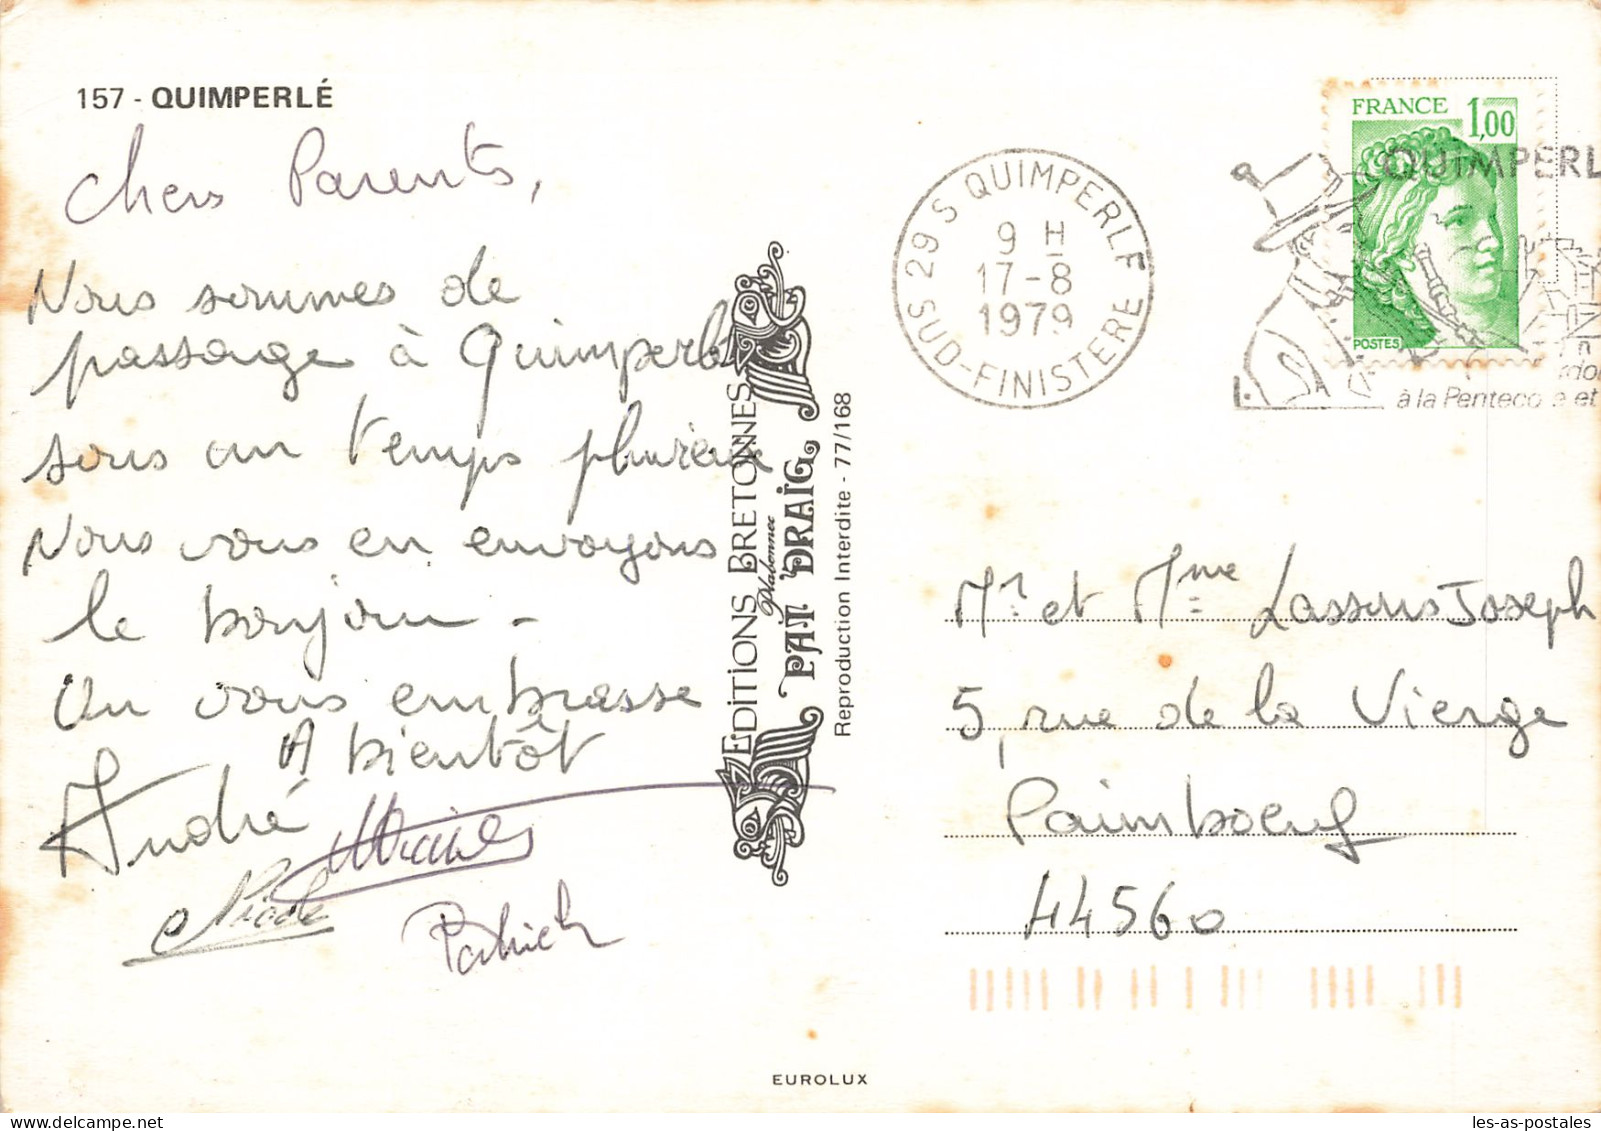 157 - QUIMPERLÉ
Chers Parents,
Nous sommes de
passage à Quimperlé
sous un temps pluvieux
Nous vous en envoyons
le bonjour -
On vous embrasse
A bientôt
André
Nicole
Patrick
EDITIONS BRETONNES
Plabennec
PAÏ DRAÏG
Reproduction Interdite - 77/168
EUROLUX
29 S QUIMPERLE
9 H
17-8
1979
SUD-FINISTERE
FRANCE 1,00
POSTES
QUIMPERL
à la Penteco e et
Mr et Mme Lassous Joseph
5, rue de la Vierge
Paimboeuf
44560
les-as-postales